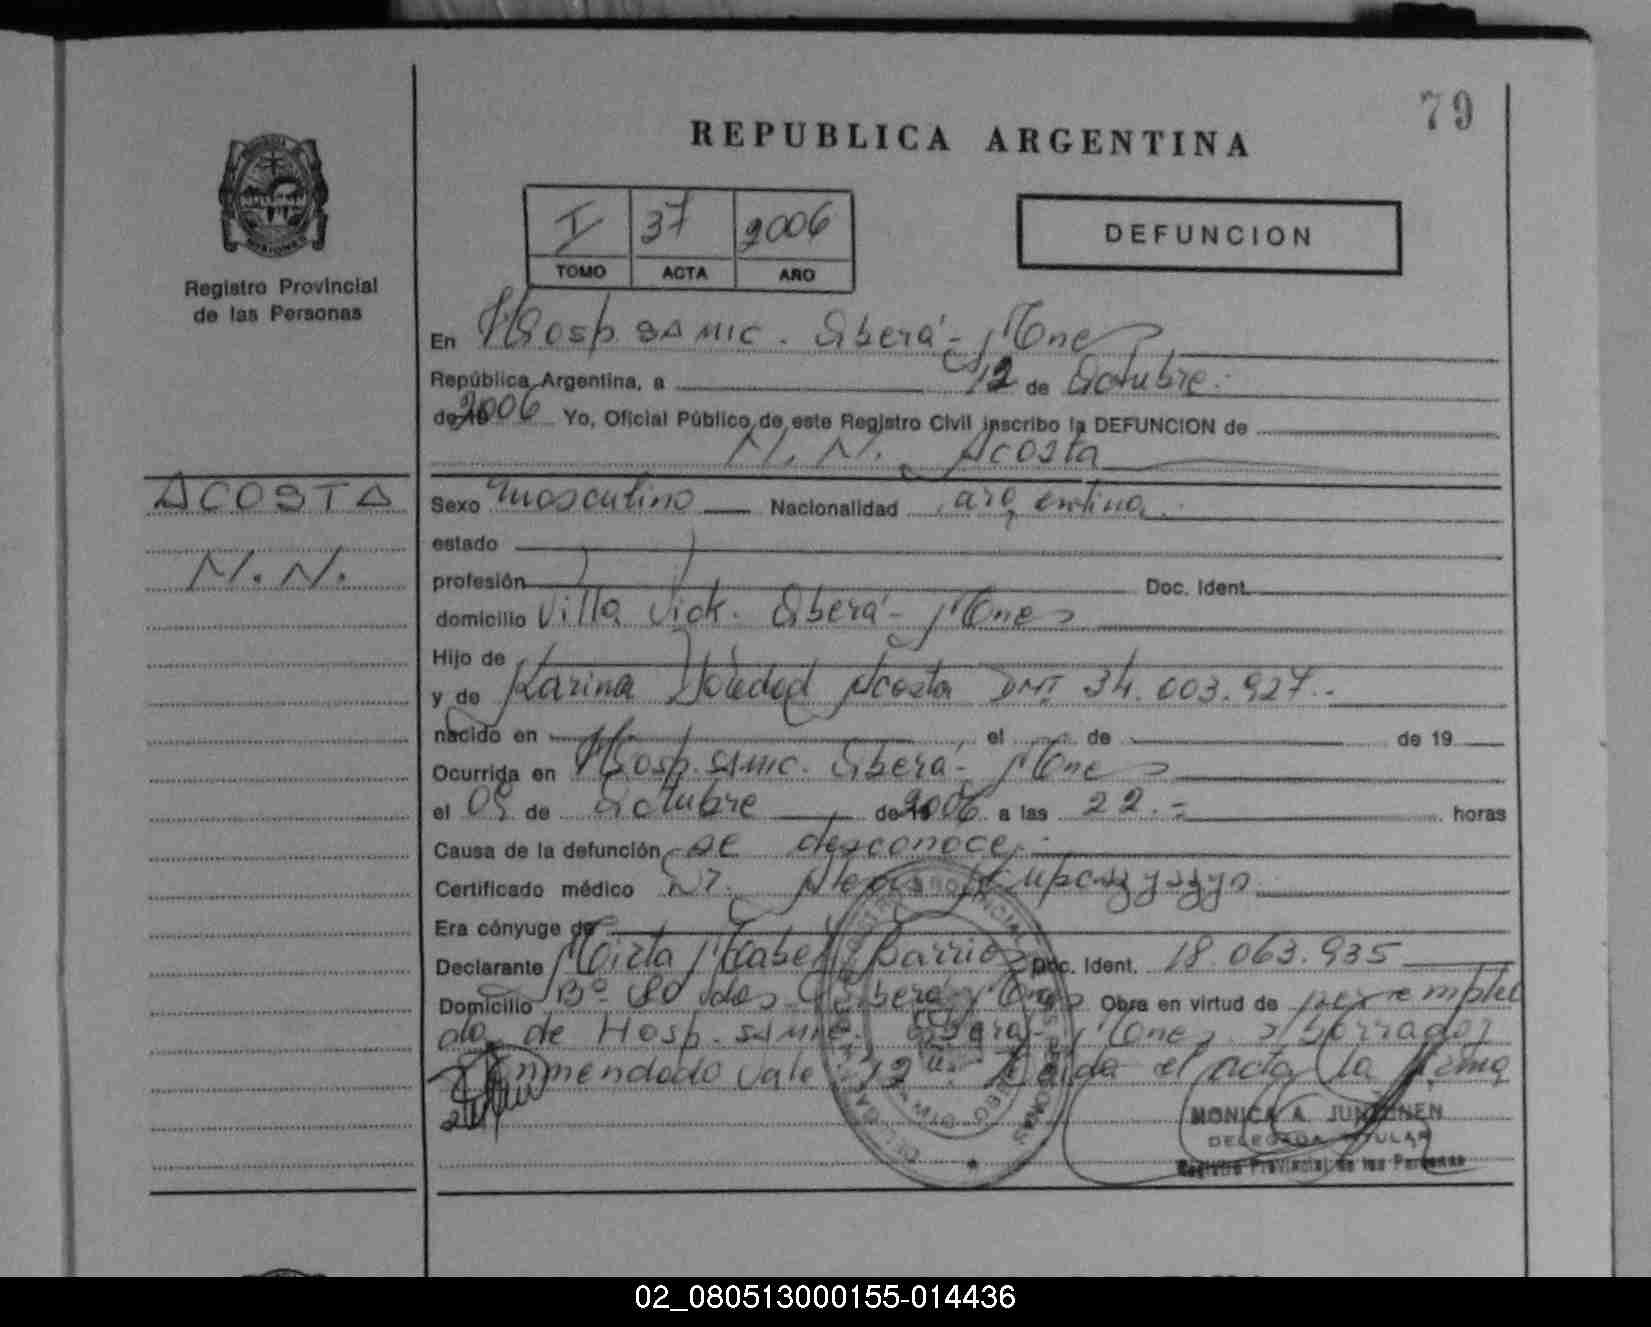 79
REPUBLICA ARGENTINA
I 37 2006
TOMO ACTA AÑO
DEFUNCION
Registro Provincial
de las Personas
En Hosp. SAMIC. Oberá - Mnes
República Argentina, a 12 de Octubre.
de 2006 Yo, Oficial Público de este Registro Civil inscribo la DEFUNCION de
N. N. Acosta
ACOSTA
N. N.
Sexo masculino Nacionalidad argentina
estado
profesión Doc. Ident.
domicilio Villa Vick. Oberá - Mnes
Hijo de
y de Karina Soledad Acosta DNI 34.003.927.-
nacido en el de de 19
Ocurrida en Hosp. SAMIC. Oberá - Mnes
el 05 de Octubre de 2006 a las 22.- horas
Causa de la defunción se desconoce.-
Certificado médico Dr.
Era cónyuge de
Declarante Mirta Mabel Barrios Doc. Ident. 18.063.935
Domicilio Bº 80 vdas Oberá Mnes Obra en virtud de
de Hosp. SAMIC. Oberá - Mnes borrador
enmendado vale "12". Leída el acta la firma
MONICA A. JUNTUNEN
DELEGADA TITULAR
Registro Provincial de las Personas
02_080513000155-014436